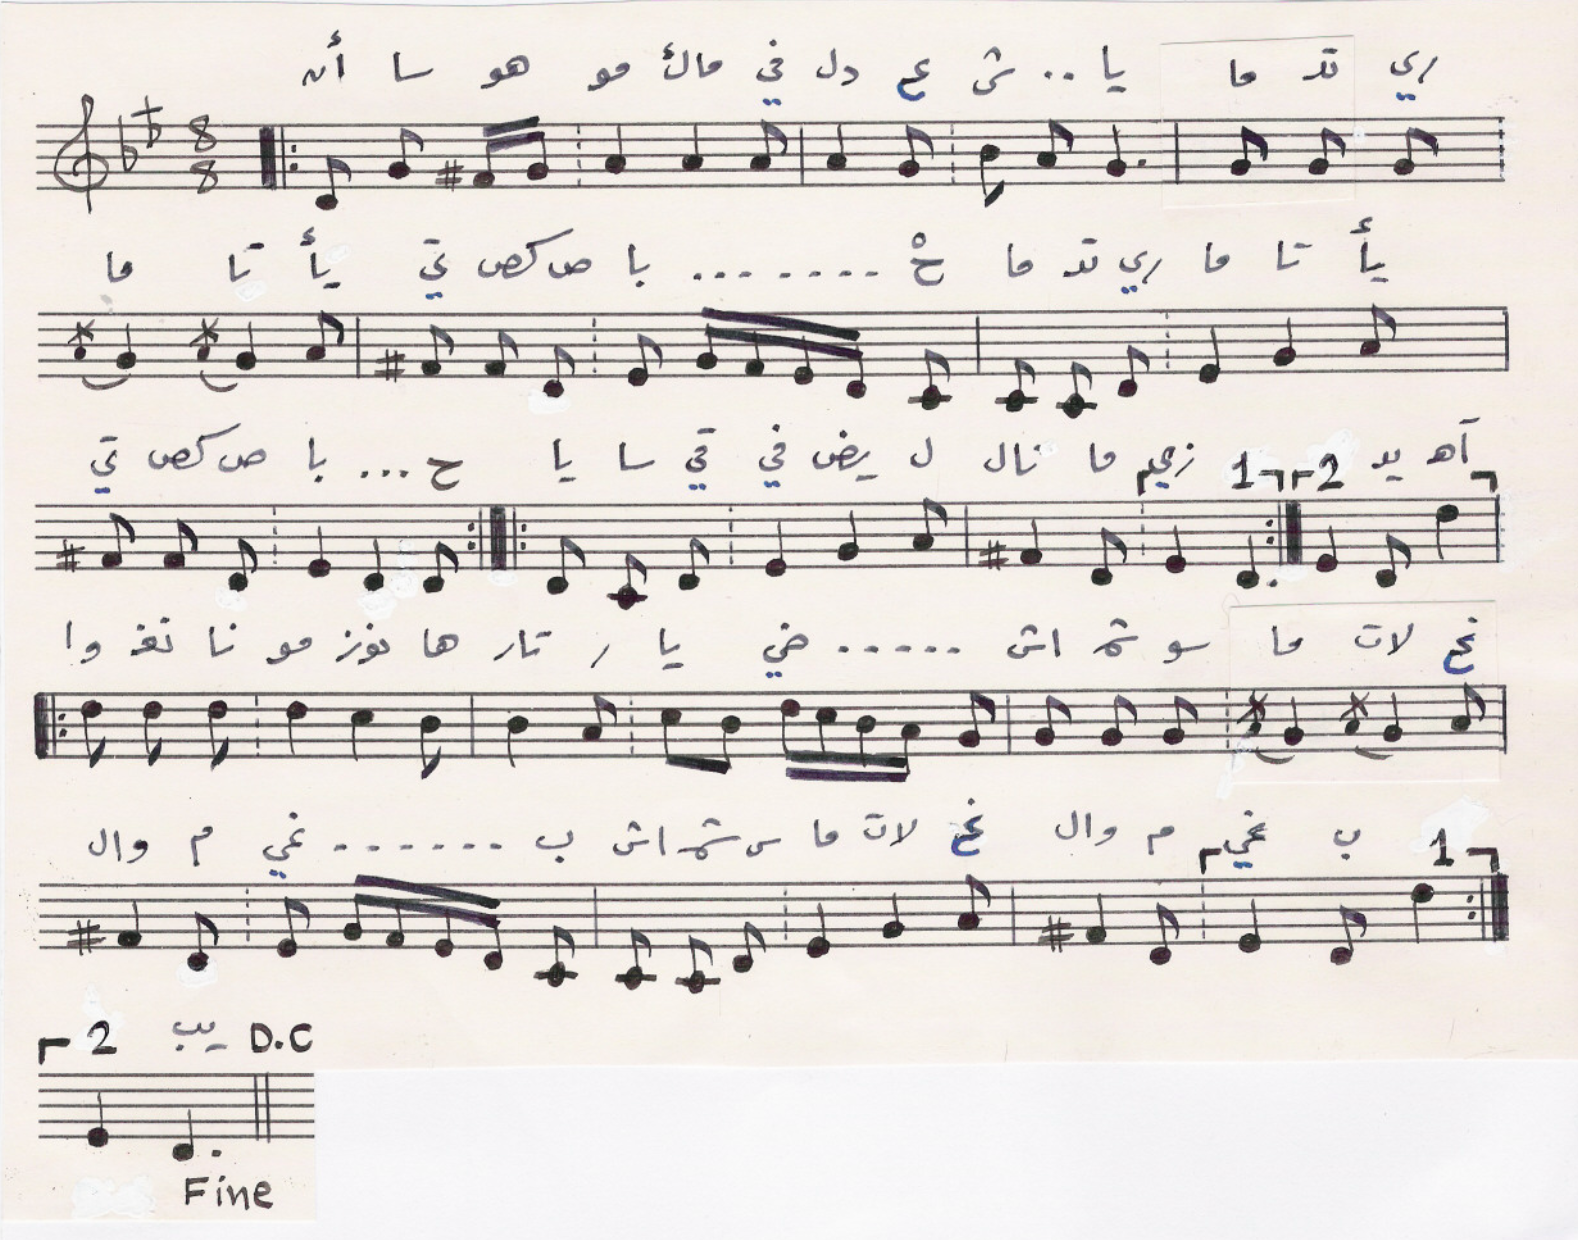 أن سا هو مو مال في دل ع ش .. يا ما تد ري
8
8
ما تا يأ تي صكص با ....... ح ما تد ري ما تا يأ
تي صكص با ... ح يا سا قي في يض ل نال ما زي 1 2 يد آه
وا تغ نا مو نوز ها تار ر يا ضي ..... اش ثم سو ما لات غ
وال م غي ...... ب اش ثم س ما لات غ وال م غي ب 1
2 يب D.C
Fine